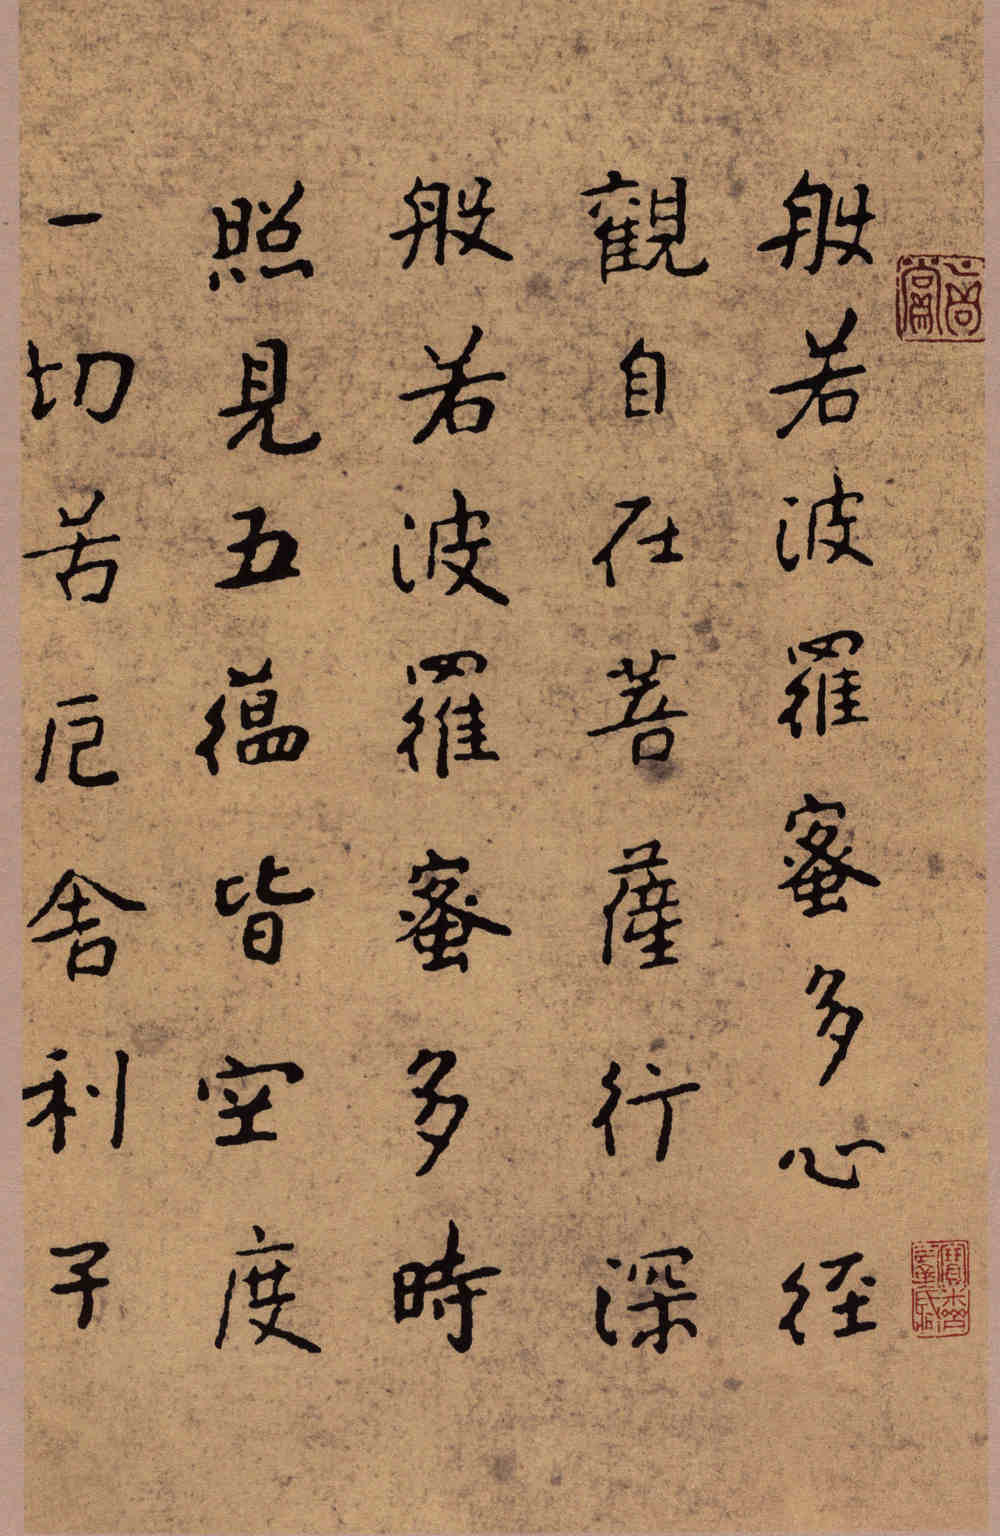 般若波羅蜜多心經
觀自在菩薩行深
般若波羅蜜多時
照見五蘊皆空度
一切苦厄舍利子